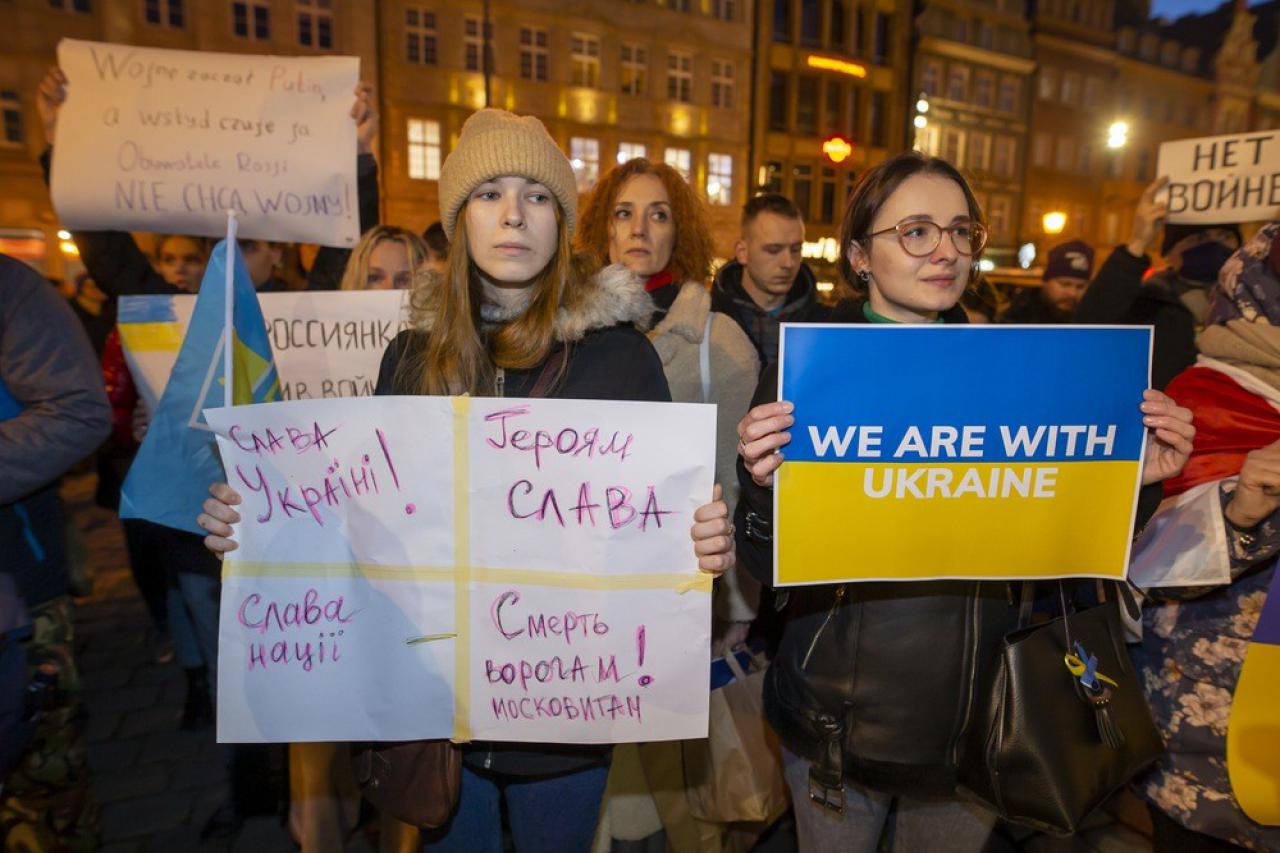 Wojnę zaczął Putin,
a wstyd czuje ja
Obywatele Rosji
NIE CHCĄ WOJNY!
НЕТ
ВОЙНЕ
РОССИЯНКА
СЛАВА
Україні!
Героям
СЛАВА
Слава
нації
Смерть
ворогам!
московитам
WE ARE WITH
UKRAINE